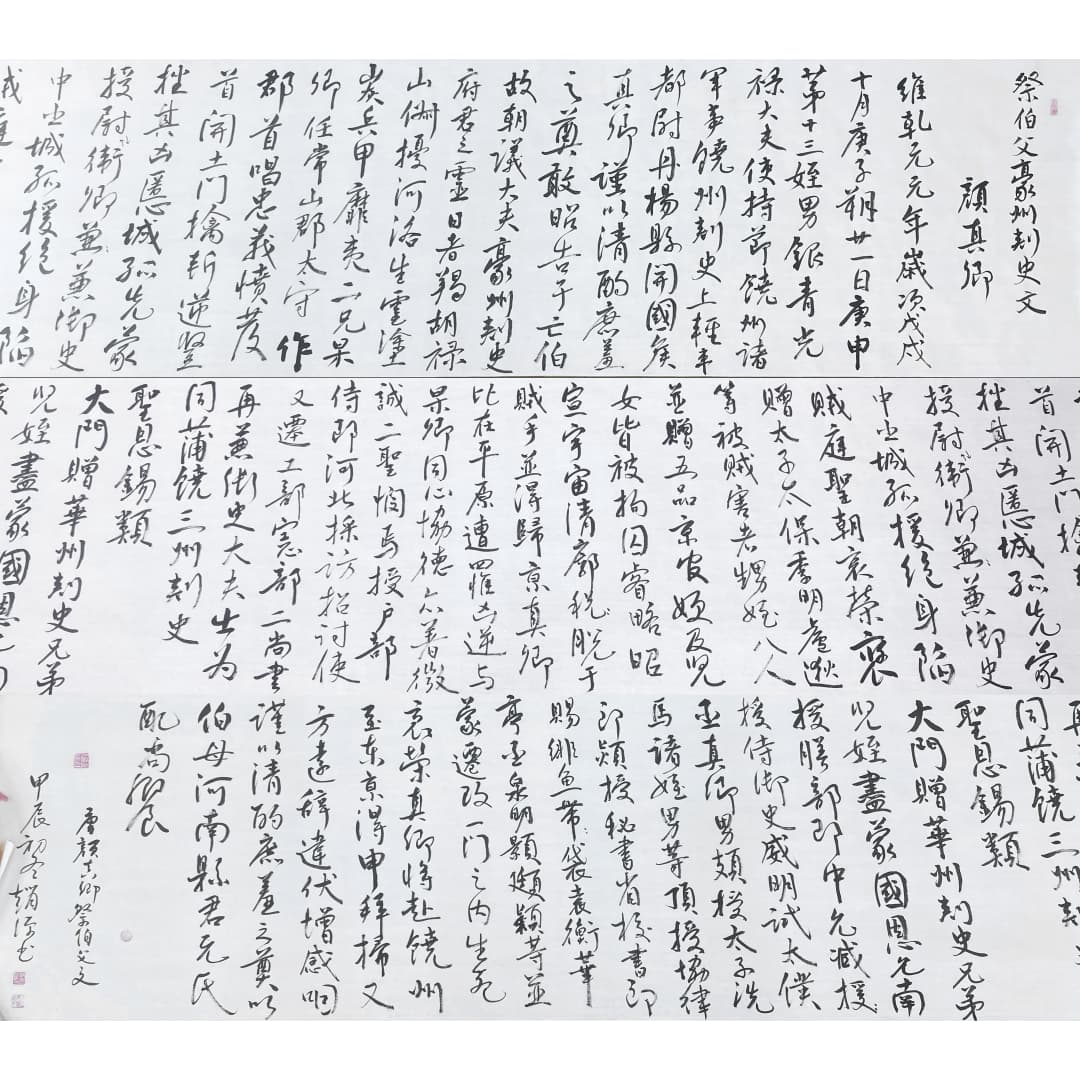 祭伯父豪州刺史文
顏真卿
維乾元元年歲次戊戌
十月庚子朔廿一日庚申
第十三姪男銀青光
祿大夫使持節饒州諸
軍事饒州刺史上輕車
都尉丹楊縣開國侯
真卿謹以清酌庶羞
之奠敢昭告于亡伯
故朝議大夫豪州刺史
府君之靈日者羯胡祿
山俶擾河洛生靈塗
炭兵甲靡夷二兄杲
卿任常山郡太守作
郡首唱忠義憤發
首開土門擒斬逆竪
挫其凶慝城孤先蒙
授尉衛卿兼兼御史
中丞城孤援絕身陷
賊庭
首開土門擒
挫其凶慝城孤先蒙
授尉衛卿兼兼御史
中丞城孤援絕身陷
賊庭聖朝哀榮褒
贈太子太保季明盧逖
等被賊害者甥姪八人
並贈五品京官嫂及兒
女皆被拘囚睿略昭
宣宇宙清廓脫于
賊手並得歸京真卿
比在平原遭罹凶逆與
杲卿同心協德亦著微
誠二聖憫焉授戶部
侍郎河北採訪招討使
又遷工部憲部二尚書
再兼御史大夫出為
同蒲饒三州刺史
聖恩錫類
大門贈華州刺史兄弟
兒姪盡蒙國恩
同蒲饒三州刺
聖恩錫類
大門贈華州刺史兄弟
兒姪盡蒙國恩允南
授膳部郎中允臧援
授侍御史威明試太僕
丞真卿男頗授太子洗
馬諸姪男等頂授協律
郎頍授秘書省校書郎
賜緋魚帶袋袁衡華
亭丞泉明顥頲潁等並
蒙遷改一門之內生死
哀榮真卿將赴饒州
至東京得申拜掃又
方遠辭違伏增感咽
謹以清酌庶羞之奠以
伯母河南縣君元氏
配尚饗
唐顏真卿祭伯父文
甲辰初冬趙書